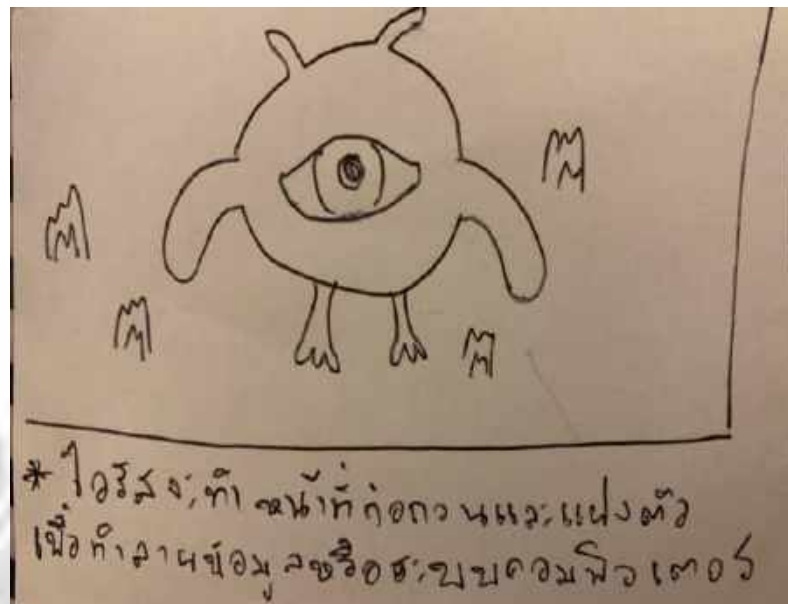 * ไวรัสจะทำหน้าที่ก่อกวนและแฝงตัว
เพื่อทำลายข้อมูลหรือระบบคอมพิวเตอร์